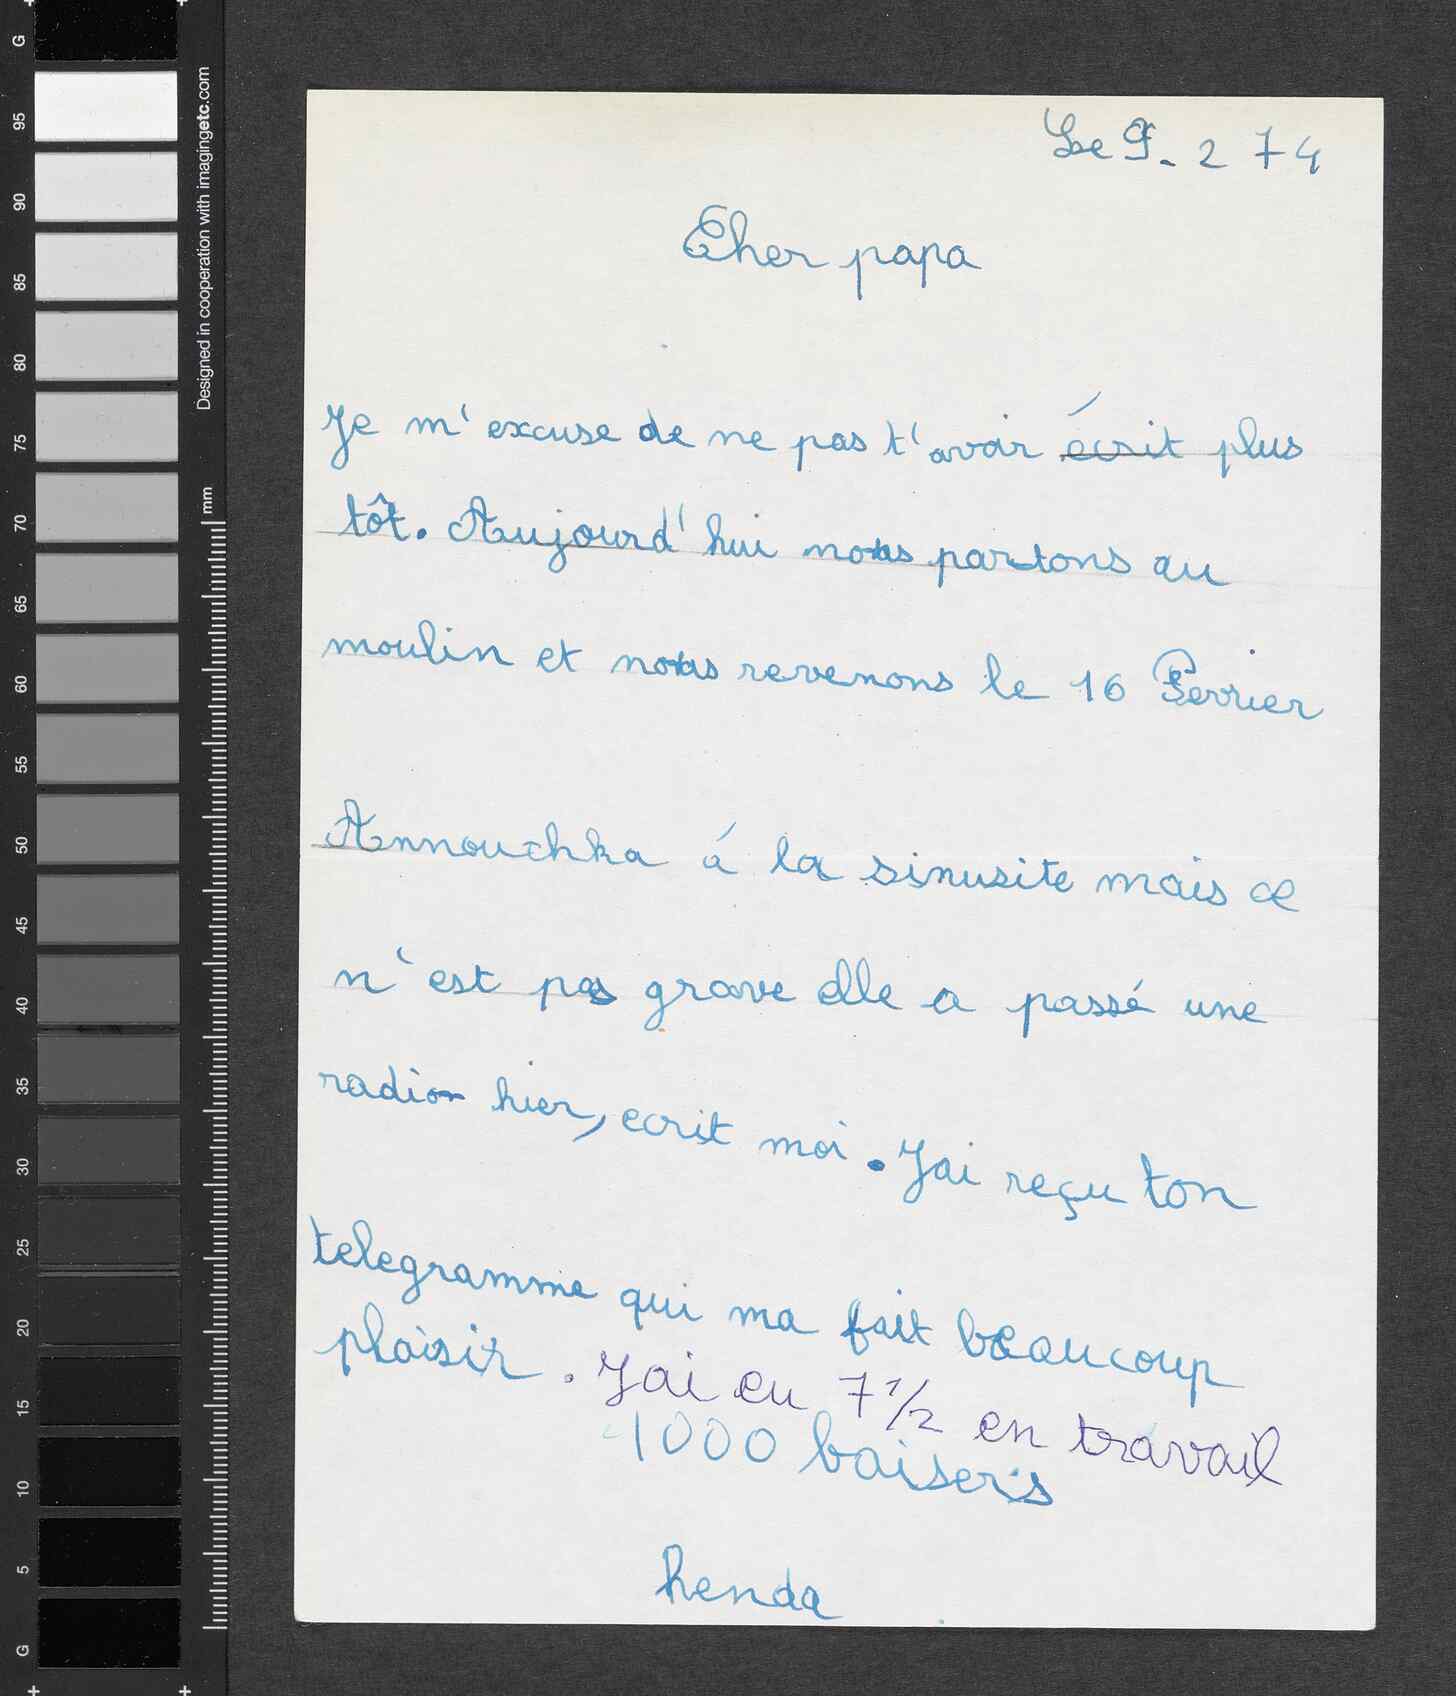 G
95
90
85
80
75
70
65
60
55
50
45
40
35
30
25
20
15
10
5
G
Designed in cooperation with imagingetc.com
mm
Le 9. 2 74
Cher papa
Je m'excuse de ne pas t'avoir écrit plus
tôt. Aujourd'hui nous partons au
moulin et nous revenons le 16 Fevrier
Annouchka á la sinusite mais ce
n'est pas grave elle a passé une
radio hier, ecrit moi. J'ai reçu ton
telegramme qui ma fait beaucoup
plaisir. J'ai eu 7 1/2 en travail
1000 baisers
henda